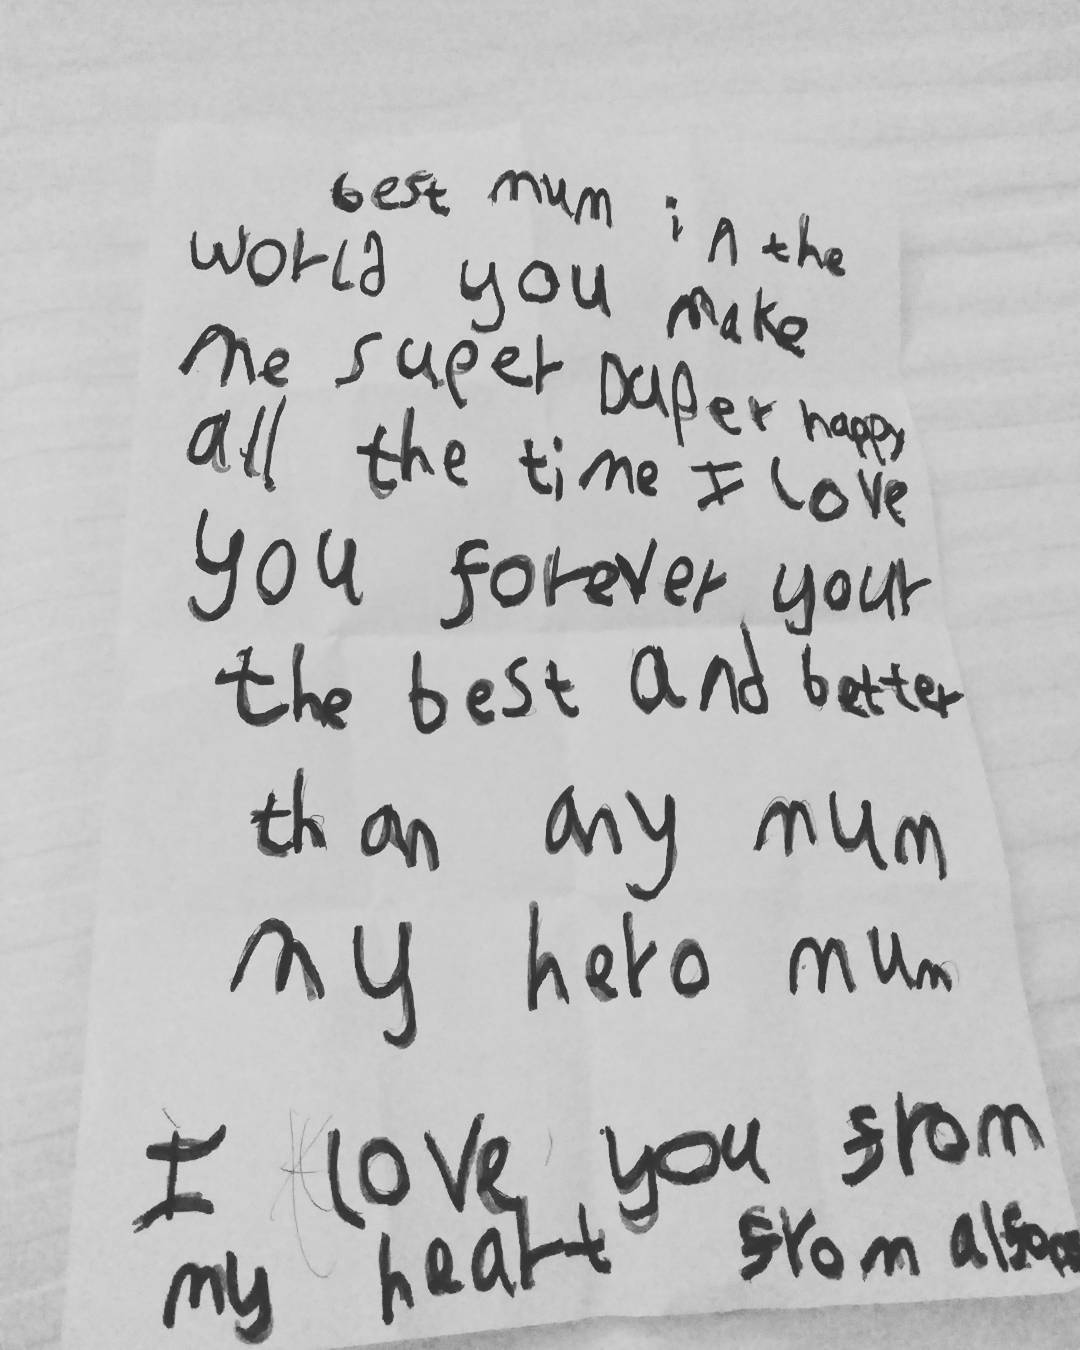 best mum in the
world you make
me super Duper happy
all the time I love
you forever your
the best and better
than any mum
my hero mum
I love you from
my heart from